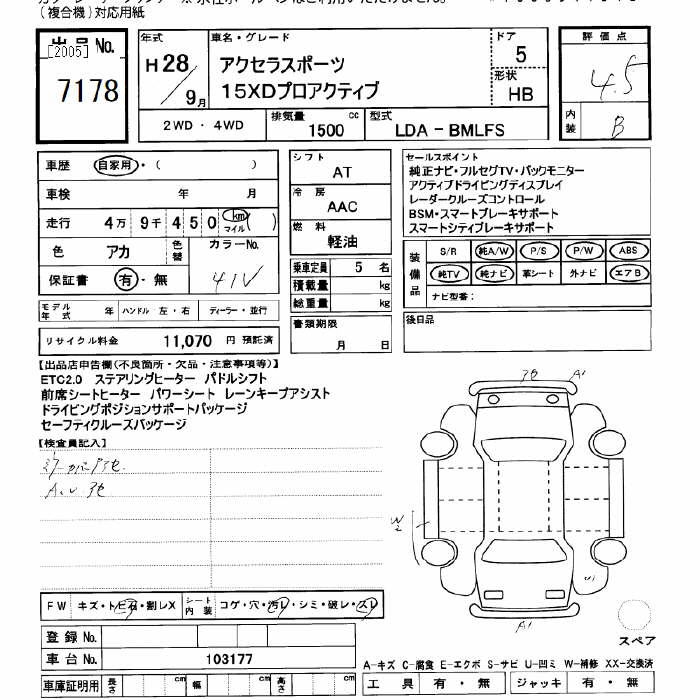 (複合機)対応用紙
出品 No.
[2005]
7178
年式
H28/9月
車名・グレード
アクセラスポーツ
15XDプロアクティブ
ドア
5
形状
HB
評価点
4.5
内装
B
2WD・4WD
排気量
1500 cc
型式
LDA-BMLFS
車歴 自家用・( )
車検 年 月
走行 4万 9千 4 5 0 km マイル ( )
色 アカ 色替 カラーNo.
保証書 有-無 41V
シフト
AT
冷房
AAC
燃料
軽油
乗車定員 5 名
積載量 kg
総重量 kg
書類期限
月 日
セールスポイント
純正ナビ・フルセグTV・バックモニター
アクティブドライビングディスプレイ
レーダークルーズコントロール
BSM・スマートブレーキサポート
スマートシティブレーキサポート
装備品
S/R 純A/W P/S P/W ABS
純TV 純ナビ 革シート 外ナビ エアB
ナビ型番:
後日品
モデル年式 年 ハンドル 左・右 ディーラー・並行
リサイクル料金 11,070 円 預託済
【出品店申告欄(不良箇所・欠品・注意事項等)】
ETC2.0 ステアリングヒーター パドルシフト
前席シートヒーター パワーシート レーンキープアシスト
ドライビングポジションサポートパッケージ
セーフティクルーズパッケージ
【検査員記入】
A1
W2
A1
FW キズ・トビ石・割レX シート内装 コゲ・穴・汚レ・シミ・破レ・スレ
登録 No.
車台 No. 103177
車庫証明用 長さ cm 幅 cm 高さ cm
スペア
A-キズ C-腐食 E-エクボ S-サビ U-凹ミ W-補修 XX-交換済
工具 有・無 ジャッキ 有・無